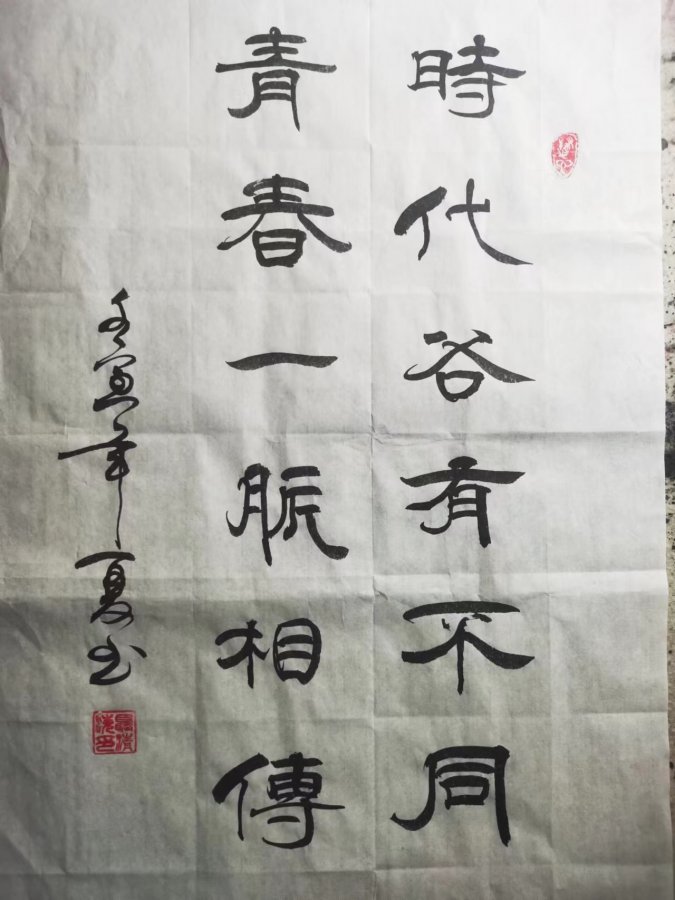 時代各有不同
青春一脈相傳
壬寅年夏书